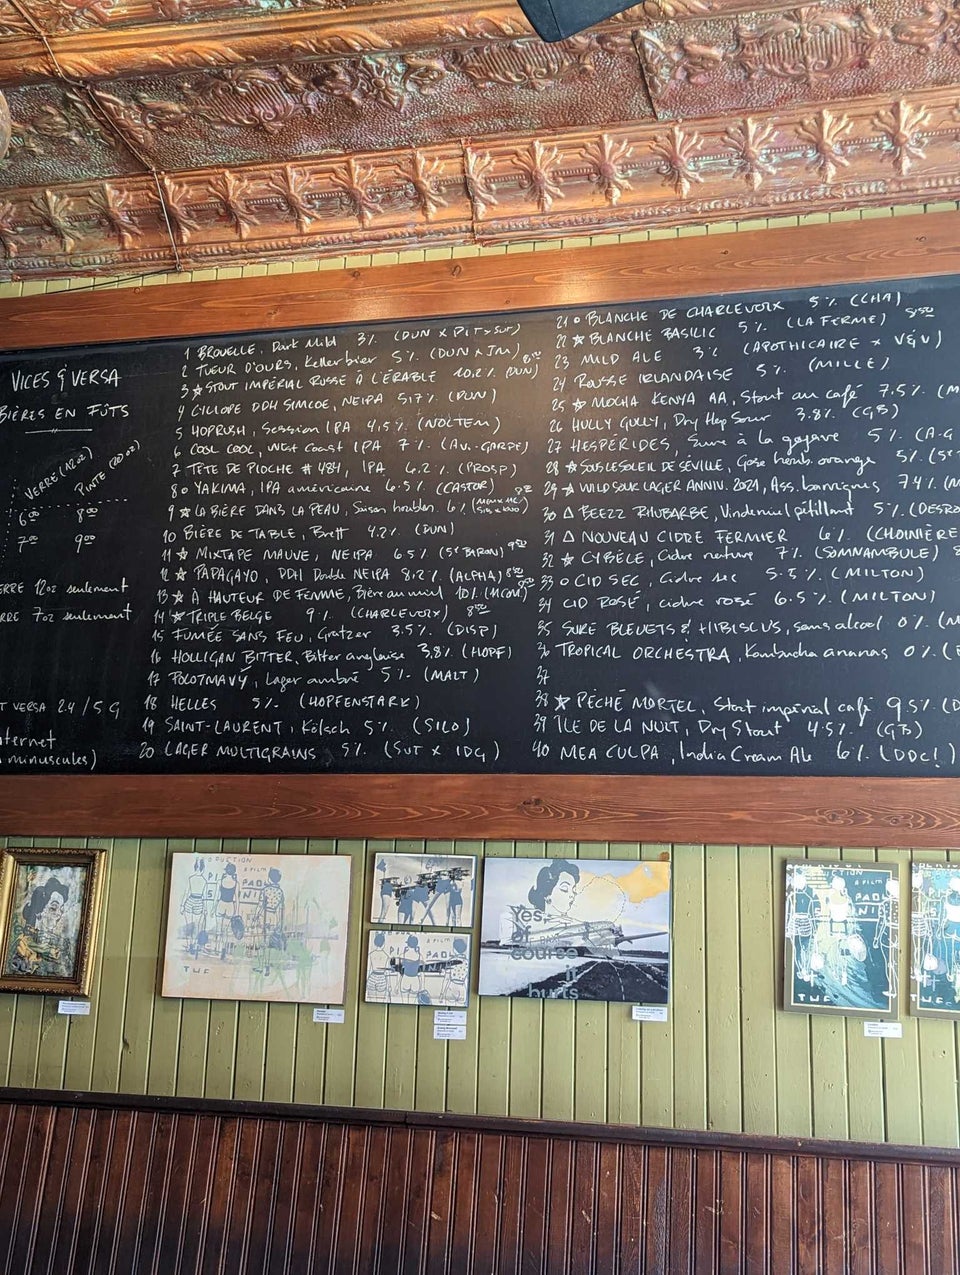 VICES & VERSA
BIÈRES EN FÛTS
VERRE (12 oz)
PINTE (20 oz)
6.00 8.00
7.00 9.00
12oz seulement
7oz seulement
VERSA 2.4 / 5 G
minuscules)
1 BROUELLE, Dark Mild 3% (DUN x PIT x SUT)
2 TUEUR D'OURS, Kellerbier 5% (DUN x JM)
3 ☆ STOUT IMPÉRIAL RUSSE À L'ÉRABLE 10.2% (DUN) 8.50
4 CYCLOPE DDH SIMCOE, NEIPA 5.7% (DUN)
5 HOPRUSH, Session IPA 4.5% (NOCTEM)
6 COOL COOL, West Coast IPA 7% (AV.-GARDE)
7 TÊTE DE PIOCHE #484, IPA 6.2% (PROSP)
8 o YAKIMA, IPA américaine 6.5% (CASTOR)
9 ☆ LA BIÈRE DANS LA PEAU, Saison houblon. 6%
10 BIÈRE DE TABLE, Brett 4.2% (DUN)
11 ☆ MIXTAPE MAUVE, NEIPA 6.5% (St BARON) 9.50
12 ☆ PAPAGAYO, DDH Double NEIPA 8.2% (ALPHA) 8.50
13 ☆ À HAUTEUR DE FEMME, Bière au miel 10% (MCOM) 8.50
14 ☆ TRIPLE BELGE 9% (CHARLEVOIX) 8.50
15 FUMÉE SANS FEU, Gratzer 3.5% (DISP)
16 HOLLIGAN BITTER, Bitter anglaise 3.8% (HOPF)
17 POLOTMAVY, Lager ambré 5% (MALT)
18 HELLES 5% (HOPFENSTARK)
19 SAINT-LAURENT, Kölsch 5% (SILO)
20 LAGER MULTIGRAINS 5% (SUT x IDG)
21 o BLANCHE DE CHARLEVOIX 5% (CHA)
22 ☆ BLANCHE BASILIC 5% (LA FERME) 8.50
23 MILD ALE 3% (APOTHICAIRE x V&V)
24 ROUSSE IRLANDAISE 5% (MILLE)
25 ☆ MOCHA KENYA AA, Stout au café 7.5%
26 HULLY GULLY, Dry Hop Sour 3.8% (GB)
27 HESPÉRIDES, Sure à la goyave 5% (A-G
28 ☆ SOUS LE SOLEIL DE SÉVILLE, Gose homb. orange 5%
29 ☆ WILD SOUR LAGER ANNIV. 2021, Ass. barriques 7.4%
30 △ BEEZZ RHUBARBE, Vin de miel pétillant 5%
31 △ NOUVEAU CIDRE FERMIER 6% (CHOINIÈRE
32 ☆ CYBÈLE, Cidre nature 7% (SOMNAMBULE)
33 o CID SEC, Cidre sec 5.5% (MILTON)
34 CID ROSÉ, cidre rosé 6.5% (MILTON)
35 SURE BLEUETS & HIBISCUS, sans alcool 0%
36 TROPICAL ORCHESTRA, Kombucha ananas 0%
37
38 ☆ PÉCHÉ MORTEL, Stout impérial café 9.5%
39 ÎLE DE LA NUIT, Dry Stout 4.5% (GB)
40 MEA CULPA, India Cream Ale 6% (DDC!)
Yes,
course
it
hurts